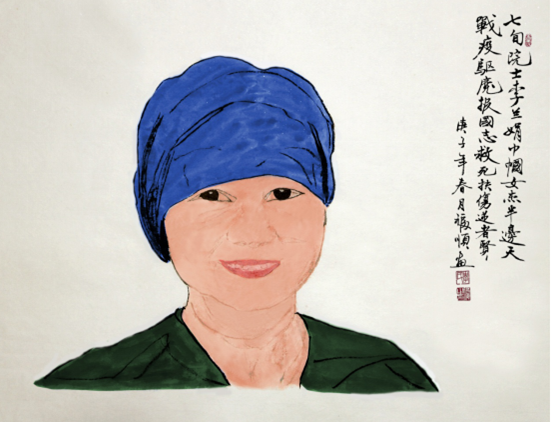 七旬院士李兰娟巾帼女杰半邊天
戰疫驅魔报國志救死扶傷逆者賢
庚子年春月福順畫